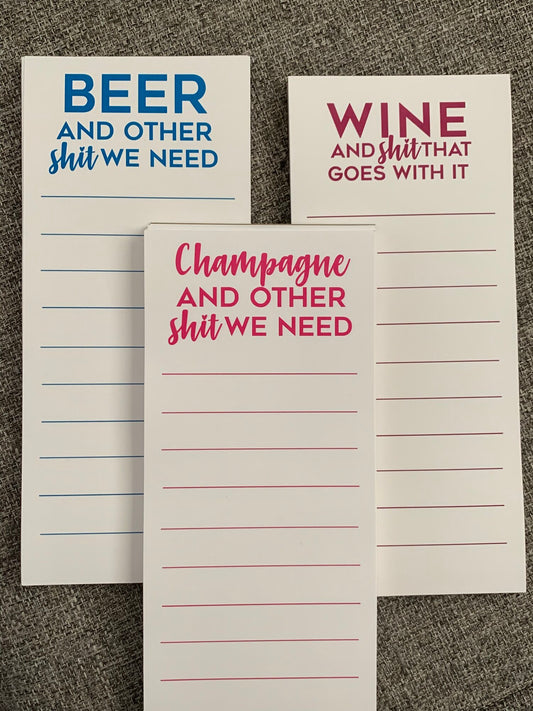 BEER
AND OTHER
shit WE NEED
WINE
AND shit THAT
GOES WITH IT
Champagne
AND OTHER
shit WE NEED